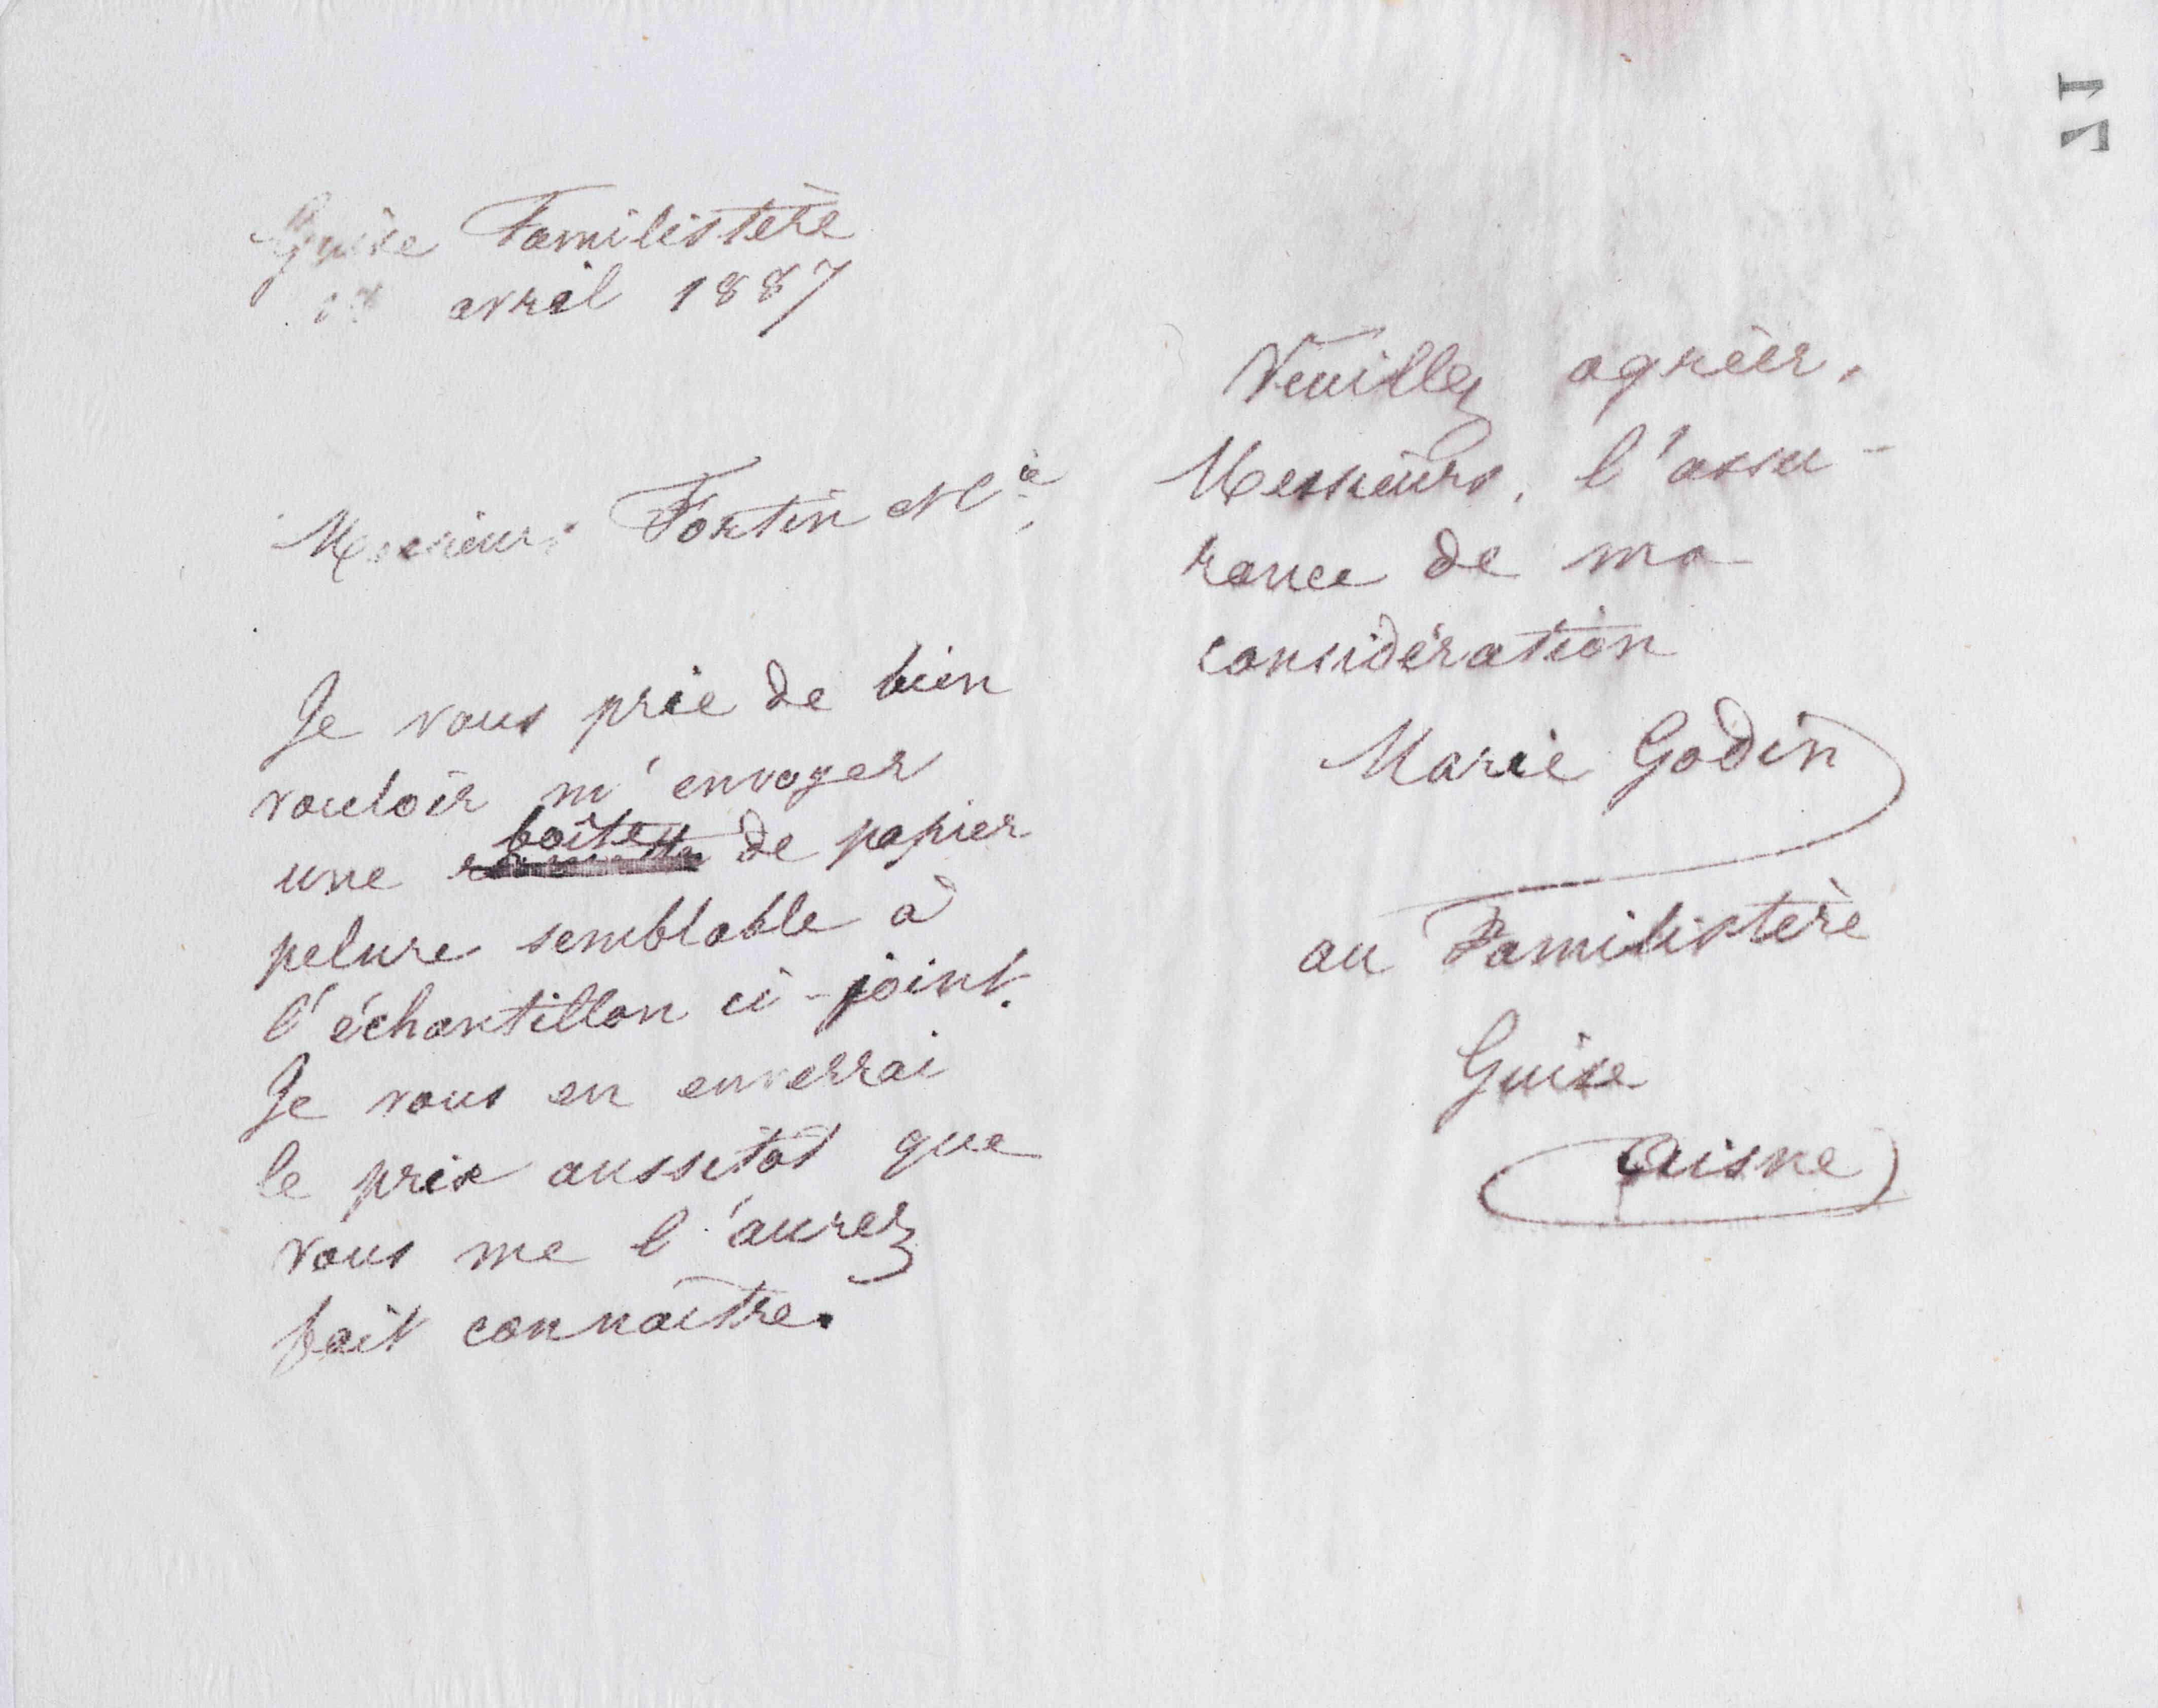 Guise Familistère
avril 1887
Messieurs Fortin & Cie,
Je vous prie de bien
vouloir m'envoyer
une boîte de papier
pelure semblable à
l'échantillon ci-joint.
Je vous en enverrai
le prix aussitôt que
vous me l'aurez
fait connaître.
Veuillez agréer,
Messieurs, l'assu-
rance de ma
considération
Marie Godin
au Familistère
Guise
Aisne)
17